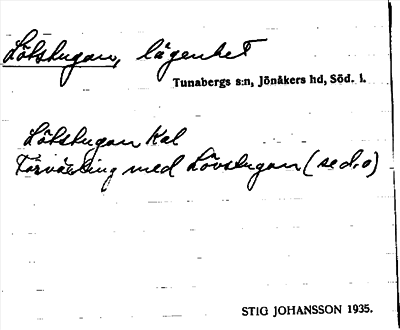 Lötstugan, lägenhet
Tunabergs s:n, Jönåkers hd, Söd. l.
Lötstugan Kal
Förväxling med Lövstugan (se d. o)
STIG JOHANSSON 1935.